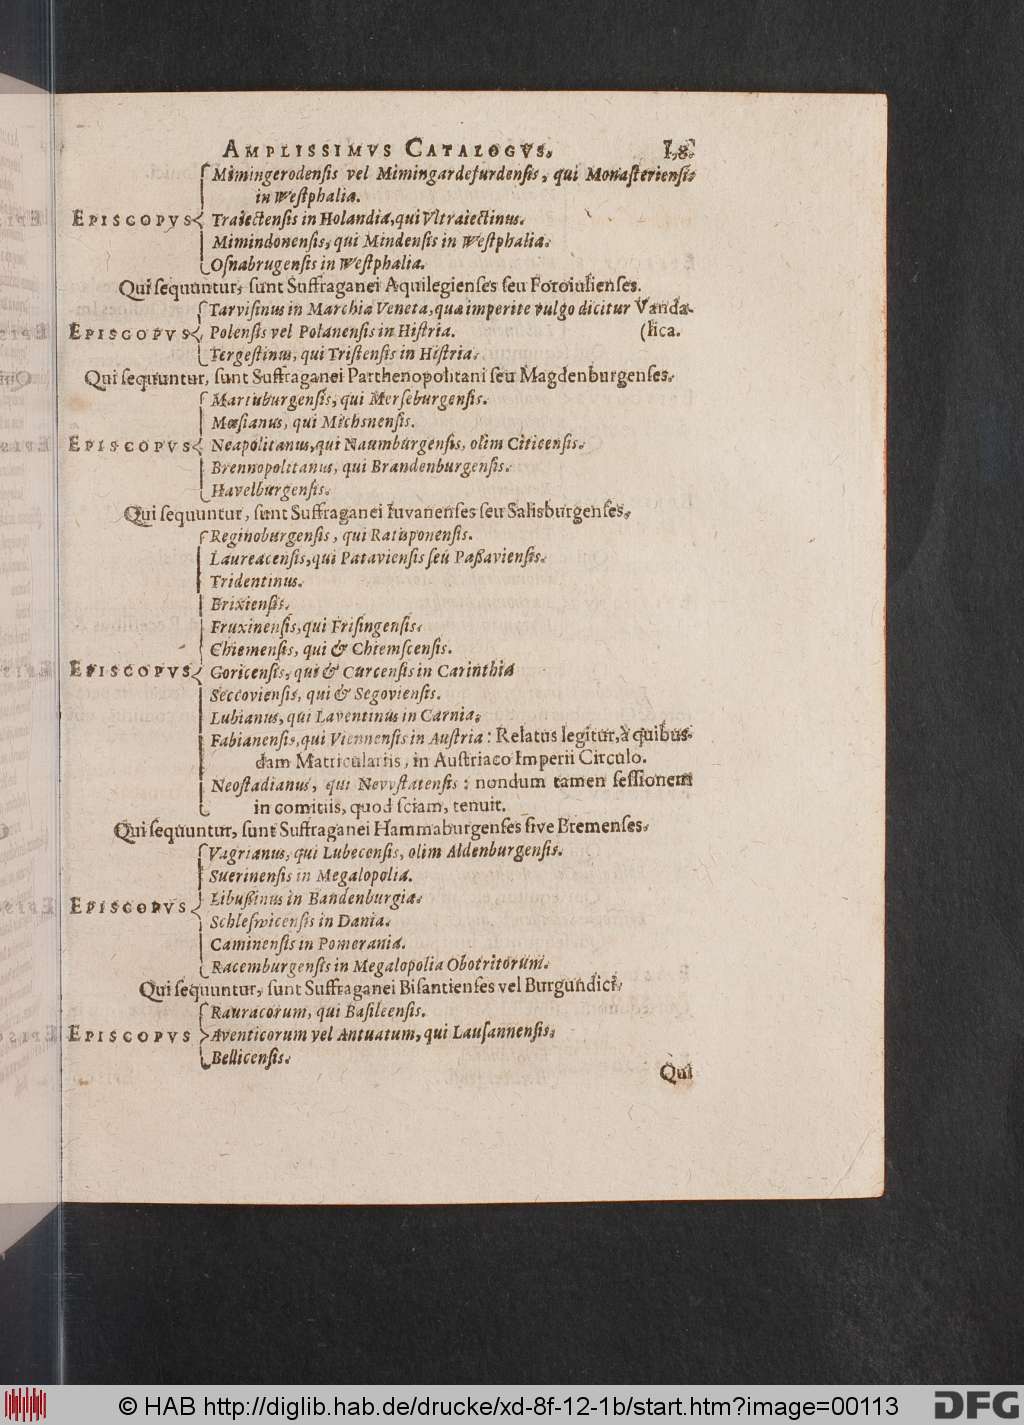 AMPLISSIMVS CATALOGVS.
Mimingerodensis vel Mimingardefurdensis, qui Monasteriensis
in Westphalia.
EPISCOPVS Traiectensis in Holandia, qui Vltraiectinus.
Mimindonensis, qui Mindensis in Westphalia.
Osnabrugensis in Westphalia.
Qui sequuntur, sunt Suffraganei Aquilegienses seu Foroiulienses.
Tarvisinus in Marchia Veneta, qua imperite vulgo dicitur Vanda-
EPISCOPVS Polensis vel Polanensis in Histria. (lica.
Tergestinus, qui Tristensis in Histria.
Qui sequuntur, sunt Suffraganei Parthenopolitani seu Magdenburgenses.
Martuburgensis, qui Merseburgensis.
Mœsianus, qui Michsnensis.
EPISCOPVS Neapolitanus, qui Naumburgensis, olim Citicensis.
Brennopolitanus, qui Brandenburgensis.
Havelburgensis.
Qui sequuntur, sunt Suffraganei Iuvanenses seu Salisburgenses.
Reginoburgensis, qui Ratisponensis.
Laureacensis, qui Pataviensis seu Paßaviensis.
Tridentinus.
Brixiensis.
Fruxinensis, qui Frisingensis.
Chiemensis, qui & Chiemscensis.
EPISCOPVS Goricensis, qui & Curcensis in Carinthia
Seccoviensis, qui & Segoviensis.
Lubianus, qui Laventinus in Carnia.
Fabianensis, qui Viennensis in Austria: Relatus legitur, à quibus
dam Matriculariis, in Austriaco Imperii Circulo.
Neostadianus, qui Nevvstatensis: nondum tamen sessionem
in comitiis, quod sciam, tenuit.
Qui sequuntur, sunt Suffraganei Hammaburgenses sive Bremenses.
Vagrianus, qui Lubecensis, olim Aldenburgensis.
Suerinensis in Megalopolia.
EPISCOPVS Libußinus in Bandenburgia.
Schleswicensis in Dania.
Caminensis in Pomerania.
Racemburgensis in Megalopolia Obotritorum.
Qui sequuntur, sunt Suffraganei Bisantienses vel Burgundici.
Rauracorum, qui Basileensis.
EPISCOPVS Aventicorum vel Antuatum, qui Lausannensis.
Bellicensis.
Qui
© HAB http://diglib.hab.de/drucke/xd-8f-12-1b/start.htm?image=00113
DFG